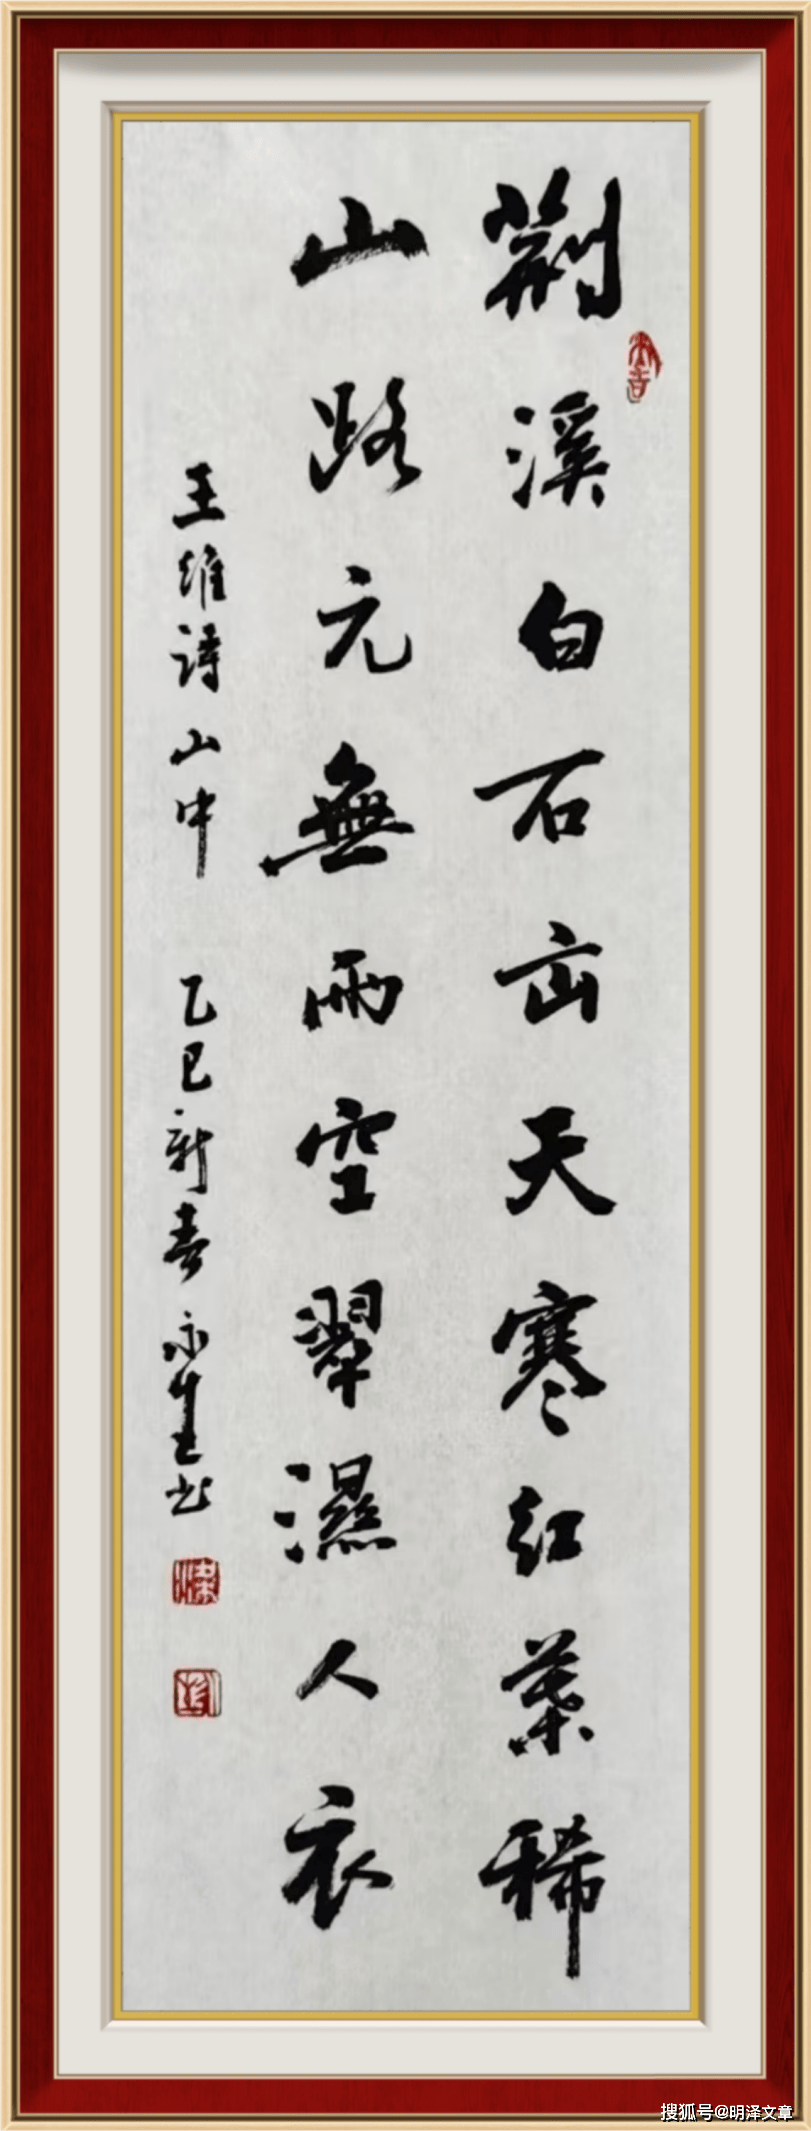 荆溪白石出天寒红葉稀
山路元無雨空翠濕人衣
王维诗山中 乙巳新春永生书
搜狐号@明泽文章